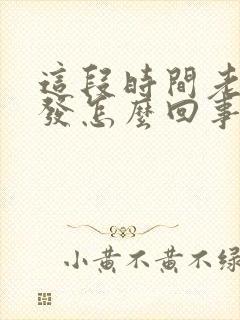 這段時間老
發怎麼回事
小黄不黄不緑